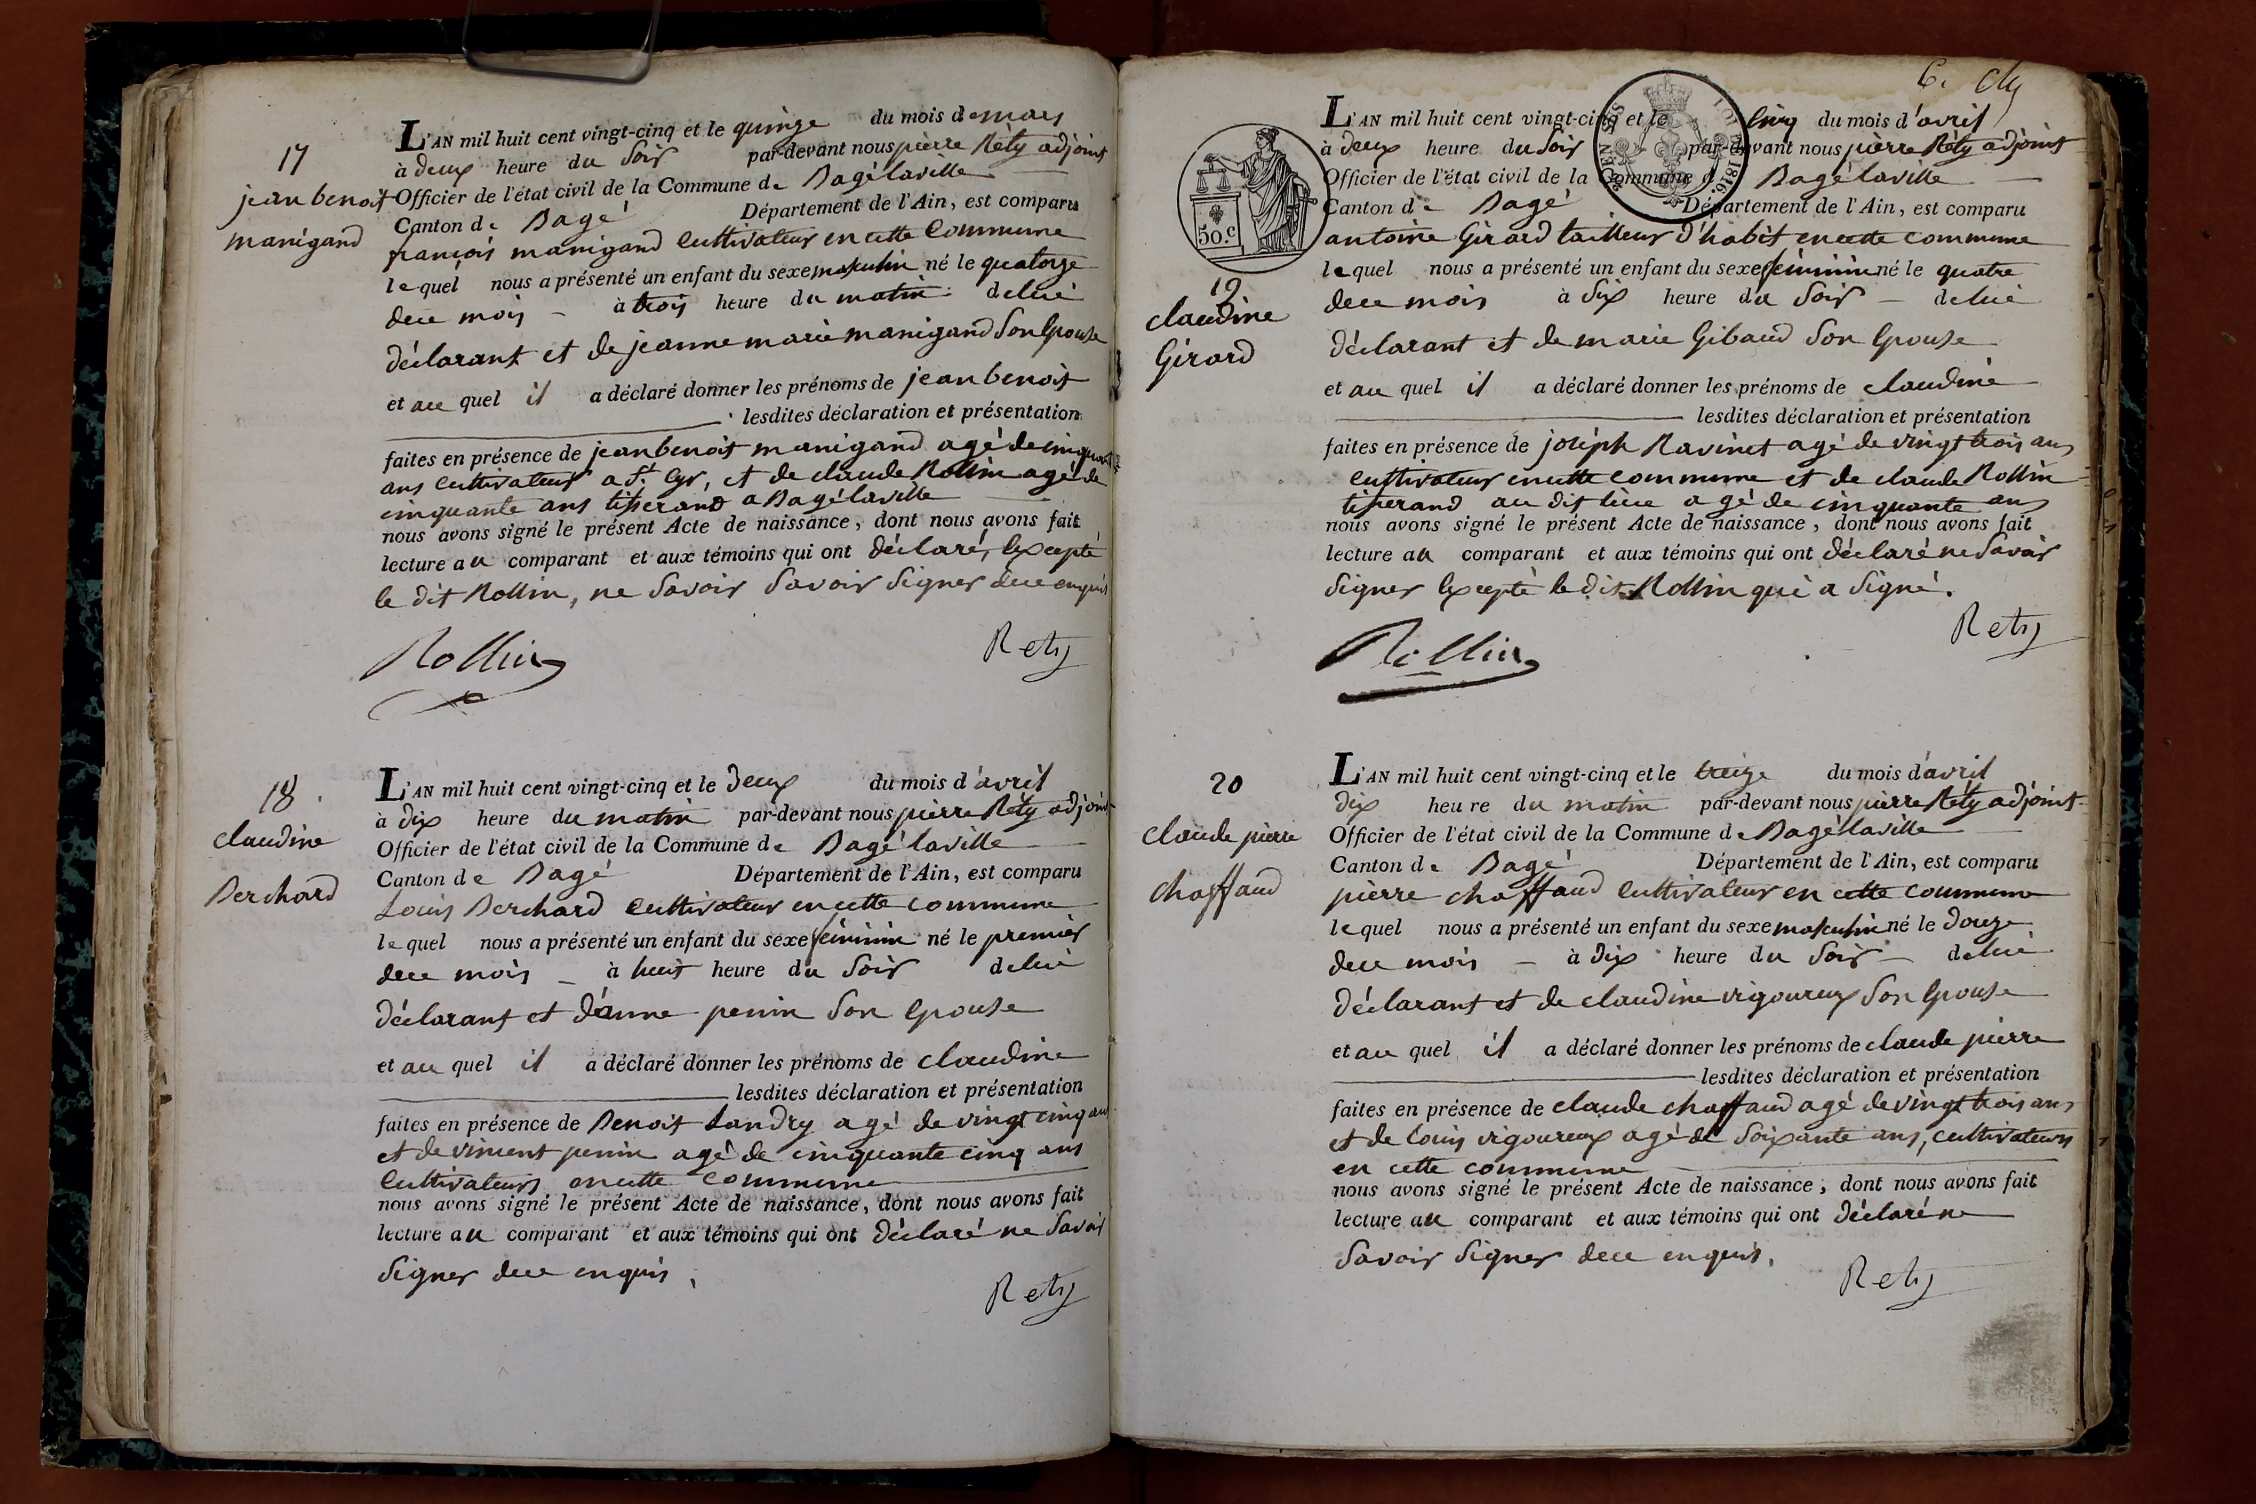 17
jean benoit
manigand
L'AN mil huit cent vingt-cinq et le quinze du mois de mars
à deux heure du soir par-devant nous pierre Réty adjoint
Officier de l'état civil de la Commune de Bagé laville
Canton de Bagé Département de l'Ain, est comparu
françois manigand cultivateur en cette commune
lequel nous a présenté un enfant du sexe masculin né le quatorze
dece mois à trois heure du matin delui
déclarant et de jeanne marie manigand son epouse
et au quel il a déclaré donner les prénoms de jean benoit
lesdites déclaration et présentation
faites en présence de jean benoit manigand agé de cinquante
ans cultivateur a St. Cyr, et de claude Rollin agé de
cinquante ans tisserand a Bagé laville
nous avons signé le présent Acte de naissance, dont nous avons fait
lecture au comparant et aux témoins qui ont déclaré, excepté
le dit Rollin, ne savoir savoir signer dece enquis
Rollin
Rety
18
claudine
Berchard
L'AN mil huit cent vingt-cinq et le deux du mois d'avril
à dix heure du matin par-devant nous pierre Réty adjoint
Officier de l'état civil de la Commune de Bagé laville
Canton de Bagé Département de l'Ain, est comparu
Louis Berchard cultivateur en cette commune
lequel nous a présenté un enfant du sexe féminin né le premier
dece mois à huit heure du soir delui
déclarant et d'anne penin son epouse
et au quel il a déclaré donner les prénoms de claudine
lesdites déclaration et présentation
faites en présence de Benoit Landry agé de vingt cinq ans
et de vincent penin agé de cinquante cinq ans
cultivateurs en cette commune
nous avons signé le présent Acte de naissance, dont nous avons fait
lecture au comparant et aux témoins qui ont déclaré ne savoir
signer dece enquis,
Rety
6.
1816.
50.c
19
claudine
Girard
L'AN mil huit cent vingt-cinq et le cinq du mois d'avril
à deux heure du soir par-devant nous pierre Réty adjoint
Officier de l'état civil de la Commune d Bagé laville
Canton de Bagé Département de l'Ain, est comparu
antoine Girard tailleur d'habit en cette commune
lequel nous a présenté un enfant du sexe féminin né le quatre
dece mois à six heure du soir delui
déclarant et de marie Gibaud son epouse
et au quel il a déclaré donner les prénoms de claudine
lesdites déclaration et présentation
faites en présence de joseph Ravinet agé de vingt trois ans
cultivateur en cette commune et de claude Rollin
tisserand au dit lieu agé de cinquante ans
nous avons signé le présent Acte de naissance, dont nous avons fait
lecture au comparant et aux témoins qui ont déclaré ne savoir
signer excepté le dit Rollin qui a signé.
Rollin
Rety
20
claude pierre
chaffaud
L'AN mil huit cent vingt-cinq et le treize du mois d'avril
dix heure du matin par-devant nous pierre Réty adjoint
Officier de l'état civil de la Commune de Bagé laville
Canton de Bagé Département de l'Ain, est comparu
pierre chaffaud cultivateur en cette commune
lequel nous a présenté un enfant du sexe masculin né le douze
dece mois à dix heure du soir delui
déclarant et de claudine vigoureux son epouse
et au quel il a déclaré donner les prénoms de claude pierre
lesdites déclaration et présentation
faites en présence de claude chaffaud agé de vingt trois ans
et de louis vigoureux agé de soixante ans, cultivateurs
en cette commune
nous avons signé le présent Acte de naissance, dont nous avons fait
lecture au comparant et aux témoins qui ont déclaré ne
savoir signer dece enquis,
Rety